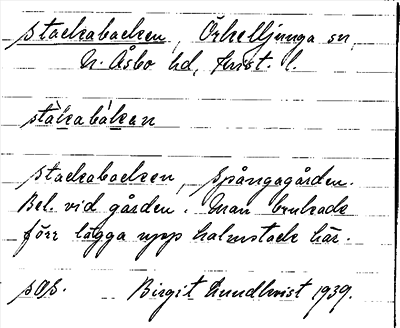 Stackabacken, Örkelljunga sn,
N. Åsbo hd, Krist. l.
stàkabák̄an
Stackabacken, Spångagården.
Bel. vid gården. Man brukade
förr lägga upp halmstack här.
sOs. Birgit Lundkvist 1939.